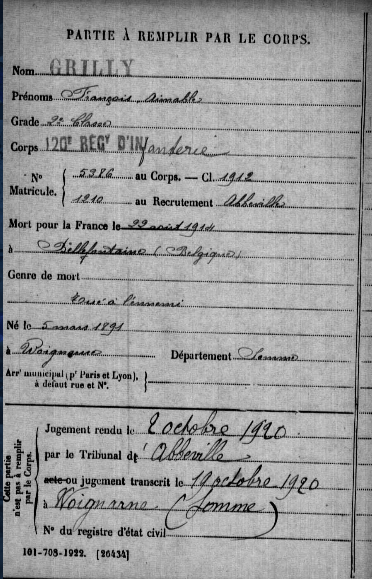 PARTIE À REMPLIR PAR LE CORPS.
Nom GRILLY
Prénoms François Aimable
Grade 2e Classe
Corps 120E RÉGT D'INfanterie
No Matricule. { 5286 au Corps. — Cl. 1912
1210 au Recrutement Abbeville
Mort pour la France le 22 août 1914
à Bellefontaine (Belgique)
Genre de mort
Tué à l'ennemi
Né le 5 mars 1891
à Woignarue Département Somme
Arrt municipal (pr Paris et Lyon), à défaut rue et No. }
Cette partie n'est pas à remplir par le Corps.
Jugement rendu le 2 octobre 1920
par le Tribunal de Abbeville
acte ou jugement transcrit le 19 octobre 1920
à Woignarue (Somme)
No du registre d'état civil
101-708-1922. [26434]